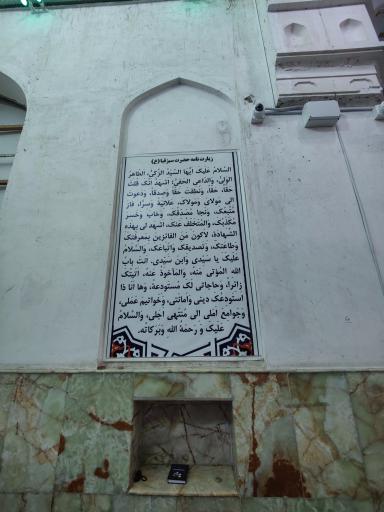 زیارت نامه حضرت سبزقبا (ع)
السَّلامُ عَلَیک اَیُّها السَّیّدُ الزَّکیُّ، الطّاهرُ
الوَلیُّ، والدّاعی الحَفیُّ؛ اَشهدُ اَنّک قُلتَ
حقّا، حَقّا، وَنطَقتَ حَقّا وصِدقا، ودَعوتَ
اِلی مَولایَ ومَولاکَ، عَلانیَة وسِرّا، فازَ
مُتَّبِعُکَ، ونَجا مُصدِّقُکَ، وخابَ وخَسِرَ
مُکَذِّبُکَ، والمُتَخَلِّفُ عَنکَ، اِشهَد لی بِهذِه
الشَّهادَة، لاَکونَ مِنَ الفائزینَ بمَعرِفَتِکَ
وطاعَتِکَ، وتَصدیقِکَ واتِّباعِکَ، والسَّلامُ
عَلیکَ یا سیِّدی وابنَ سیِّدی، اَنتَ بابُ
اللهِ المُؤتی مِنهُ، والمَأخوذُ عَنهُ، اَتَیتُکَ
زائراً، وحاجاتی لَکَ مُستَودِعاً، وها اَنا ذا
اَستَودِعُکَ دینی واَمانَتی، وخَواتیمَ عَمَلی،
وجَوامِعَ اَمَلی اِلی مُنتَهی اَجَلی، والسَّلامُ
عَلَیکَ وَ رَحمَةُ اللهِ وَبَرَکاتُه.